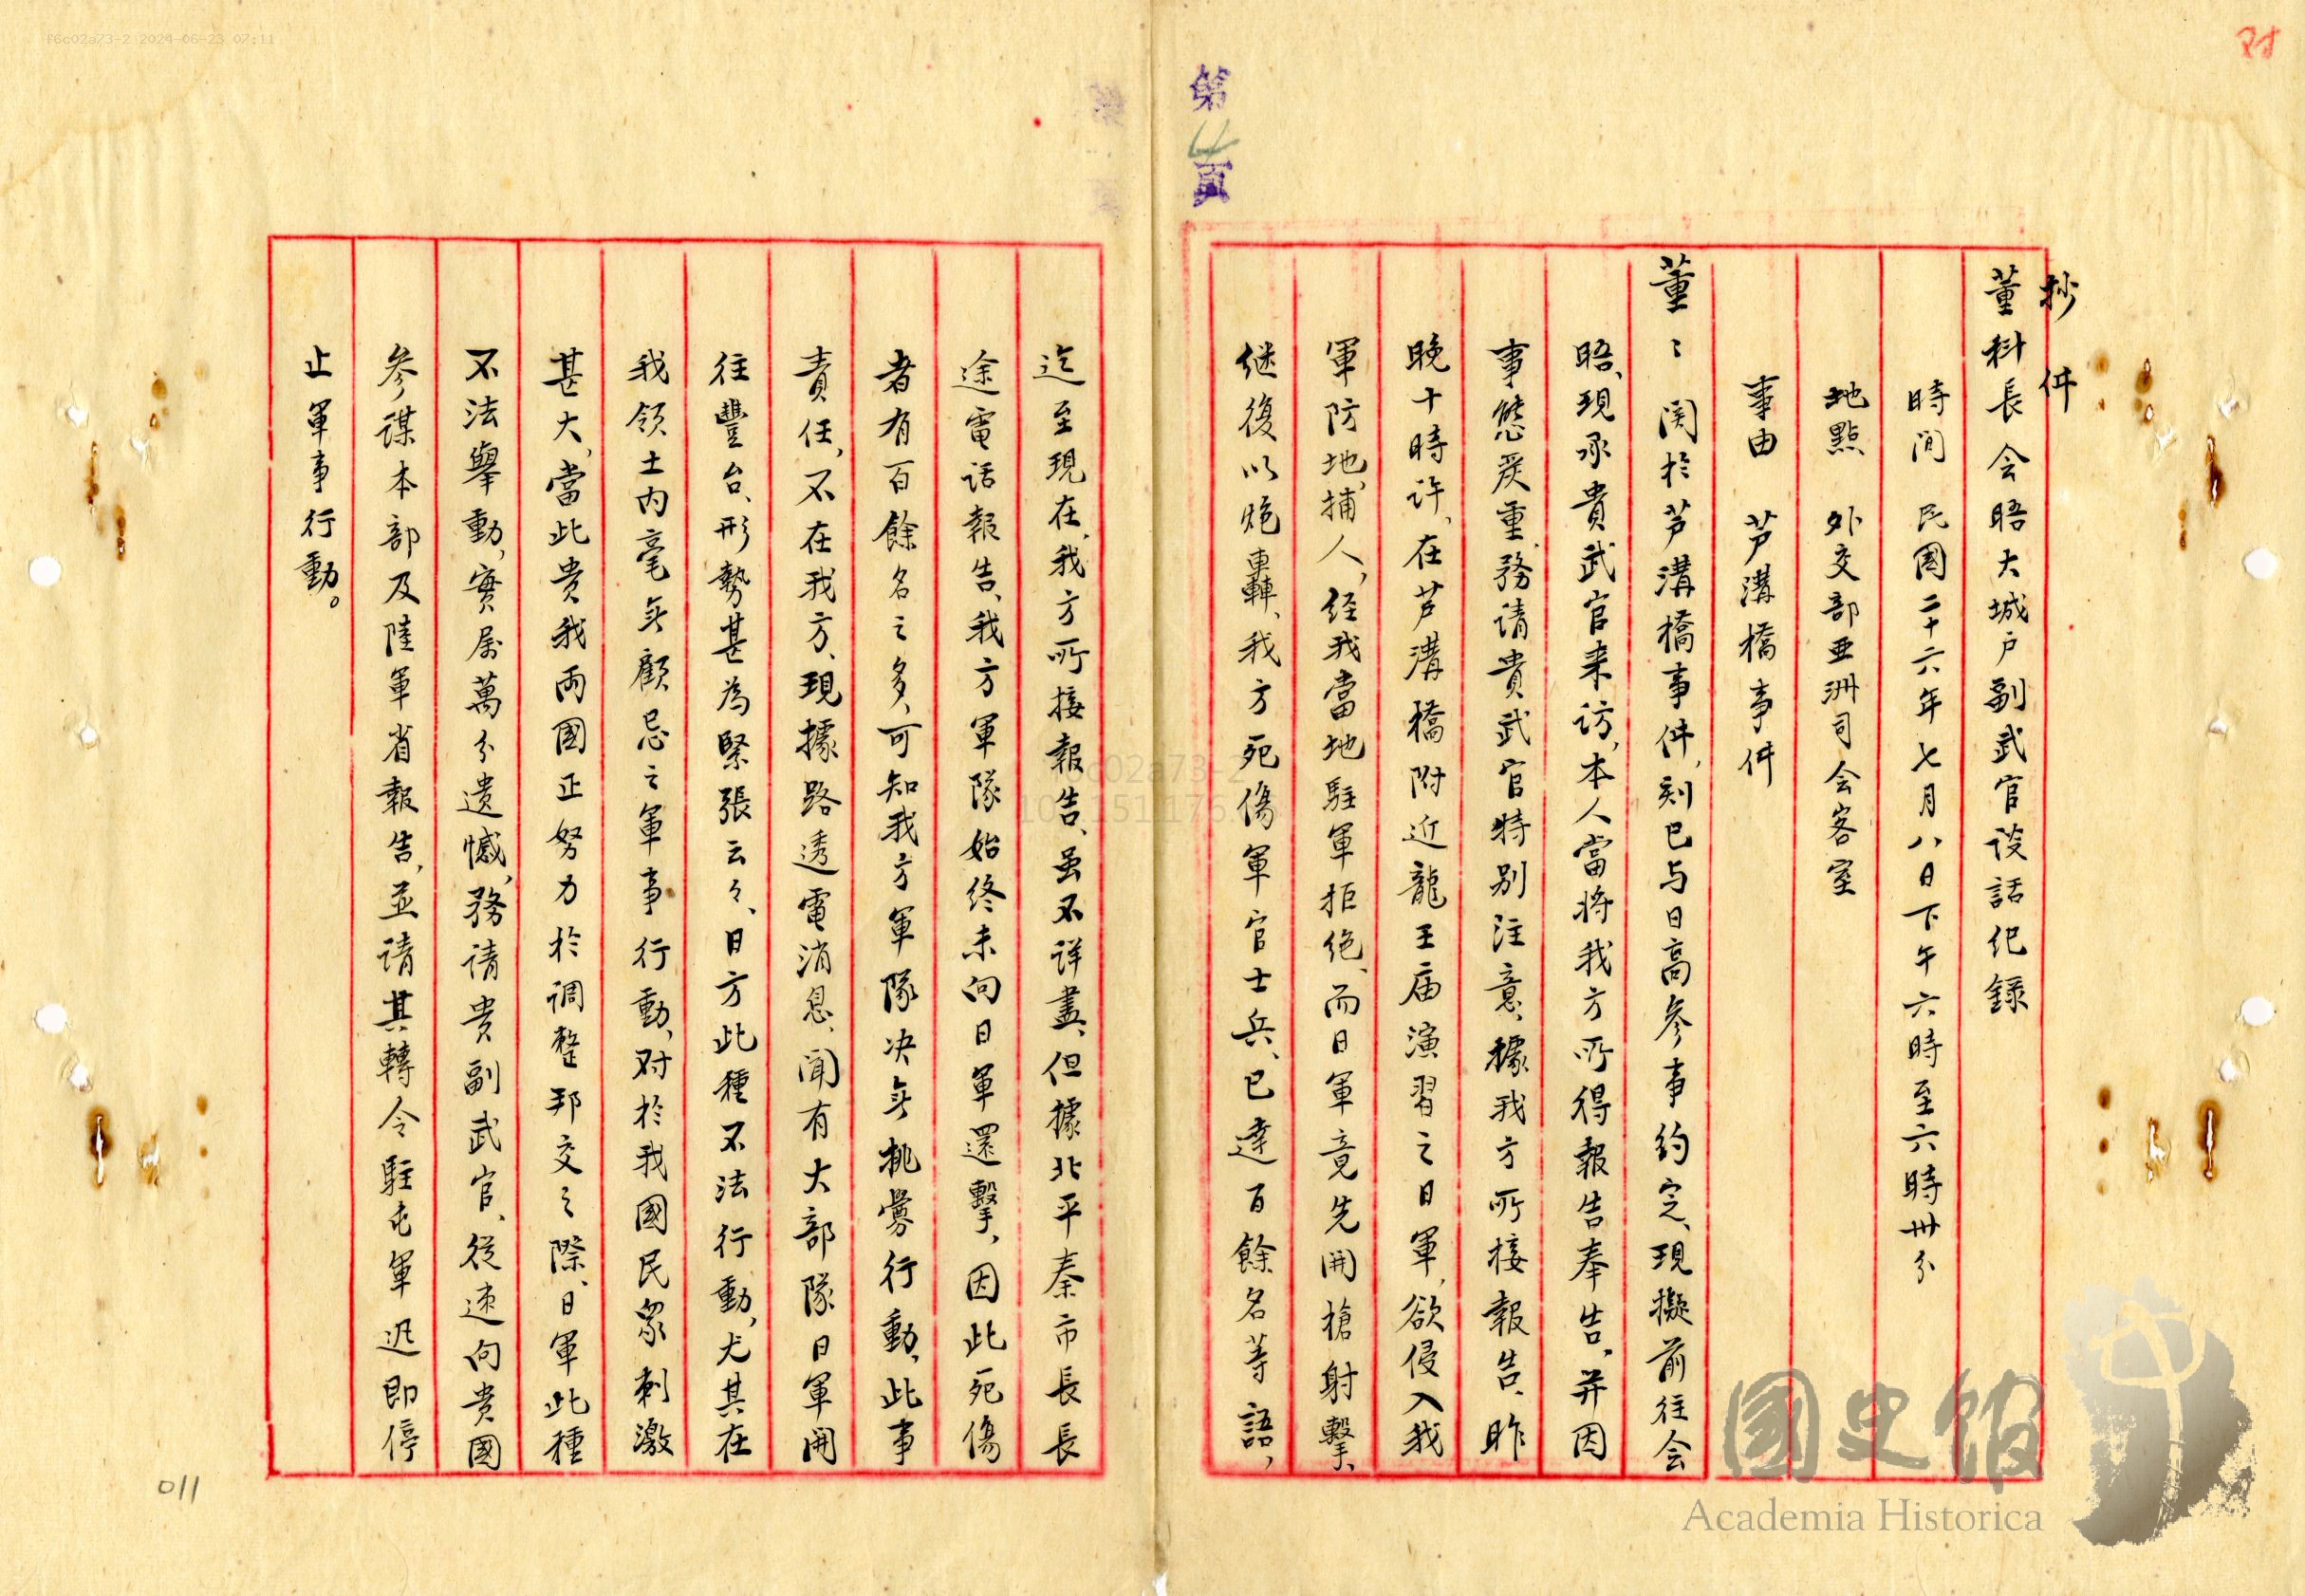 f6c02a73-2 2024-06-23 07:11
对
第4頁
抄件
董科長会晤大城户副武官談話纪錄
時间 民國二十六年七月八日下午六時至六時卅分
地點 外交部亚洲司会客室
事由 芦溝橋事件
董:関於芦溝橋事件,刻已与日高參事約定、現擬前往会
晤、現承貴武官来訪,本人當将我方所得報告奉告,并因
事態嚴重、務请貴武官特别注意、據我方所接報告、昨
晚十時许、在芦溝橋附近龍王庙演習之日軍,欲侵入我
軍防地、捕人,经我當地駐軍拒绝、而日軍竟先開槍射擊、
继復以炮轟、我方死傷軍官士兵、已達百餘名等語,
迄至現在、我方所接報告、虽不详盡、但據北平秦市長長
途電话報告、我方軍隊始终未向日軍還擊,因此死傷
者有百餘名之多,可知我方軍隊决无挑釁行動、此事
責任,不在我方、現據路透電消息、聞有大部隊日軍開
往豐台、形勢甚為緊張云々、日方此種不法行動,尤其在
我領土内毫无顧忌之軍事行動,对於我國民眾刺激
甚大、當此貴我两國正努力於调整邦交之際、日軍此種
不法舉動,實属萬分遗憾,務请貴副武官、從速向貴國
參謀本部及陸軍省報告,並请其轉令駐屯軍迅即停
止軍事行動。
011
國史館
Academia Historica